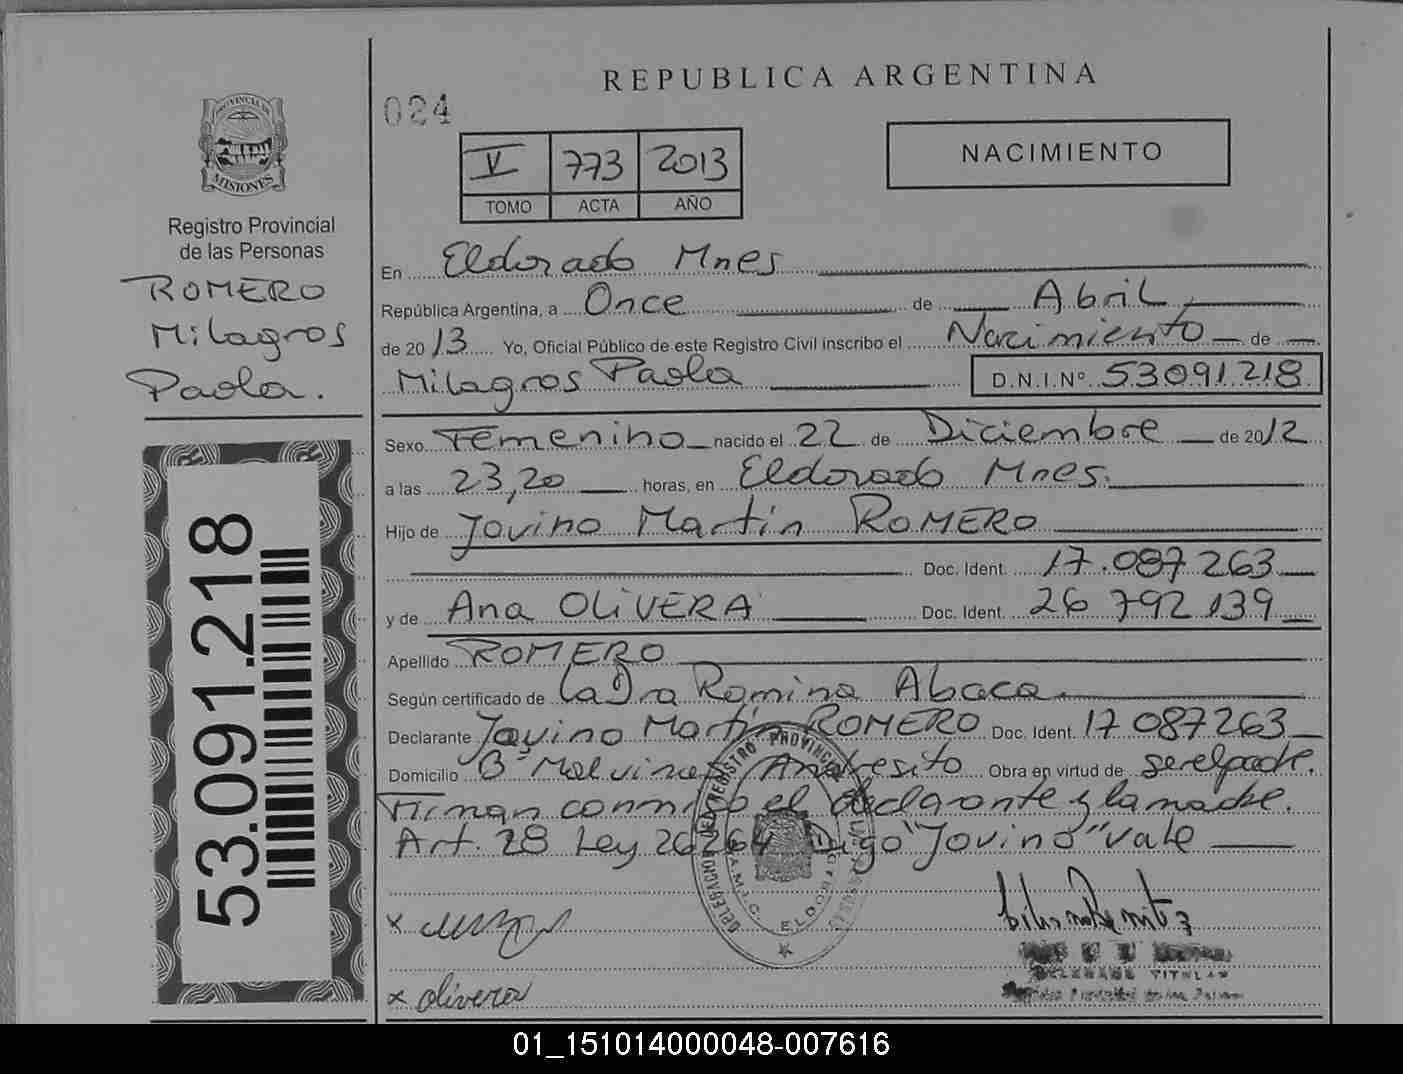 REPUBLICA ARGENTINA
024
PROVINCIA DE
MISIONES
Registro Provincial
de las Personas
ROMERO
Milagros
Paola.
V 773 2013
TOMO ACTA AÑO
NACIMIENTO
En Eldorado Mnes
República Argentina, a Once de Abril
de 2013 Yo, Oficial Público de este Registro Civil inscribo el Nacimiento de
Milagros Paola D.N.I.Nº 53091218
Sexo Femenino nacido el 22 de Diciembre de 2012
a las 23,20 horas, en Eldorado Mnes.
Hijo de Jovino Martín ROMERO
Doc. Ident. 17.087 263
y de Ana OLIVERA Doc. Ident. 26 792 139
Apellido ROMERO
Según certificado de La Dra Romina Abaca
Declarante Joyino Martín ROMERO Doc. Ident. 17 087263
Domicilio Bº Malvinas Andresito Obra en virtud de ser el padre.
Firman conmigo el declarante y la madre.
Art. 28 Ley 26264 Digo "Jovino" vale
53.091.218
DELEGACION DEL REGISTRO PROVINCIAL
ELDORADO
x olivera
DELEGADO TITULAR
01_151014000048-007616